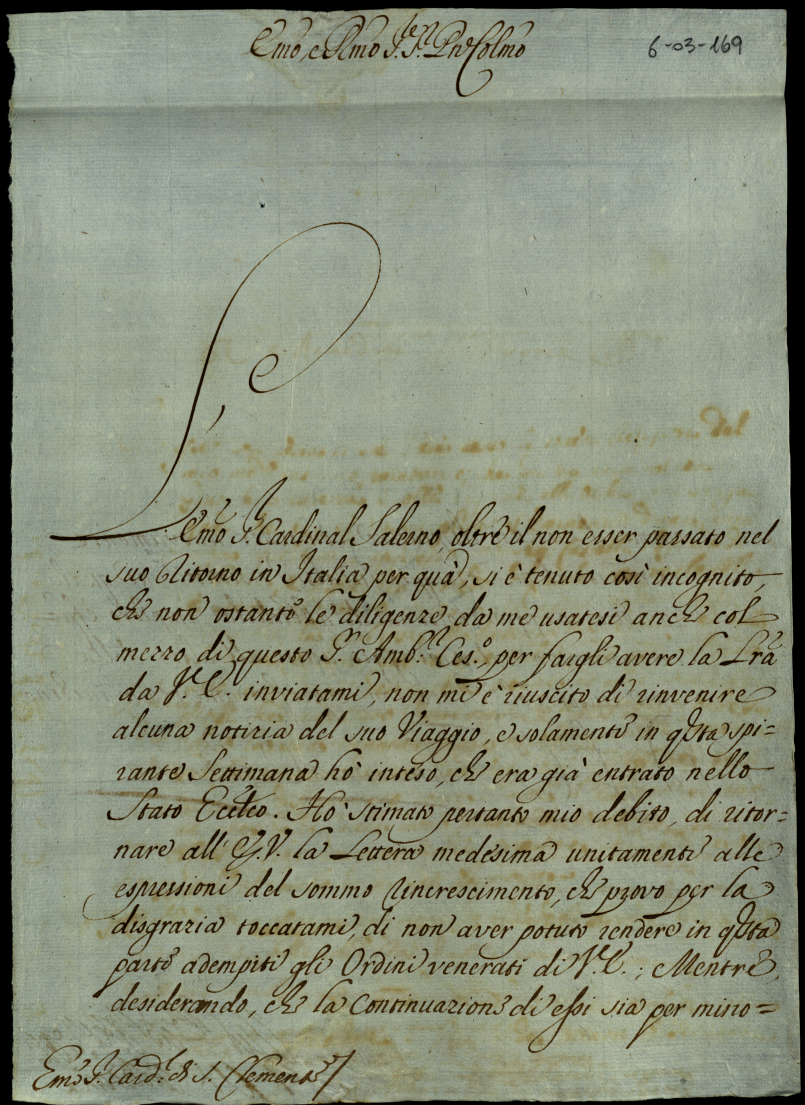 Emo, e Rmo Sig.r Sig.r Pne Colmo
6-03-169
L'Emo Sr. Cardinal Salerno, oltre il non esser passato nel
suo Ritorno in Italia per quà, si è tenuto così incognito,
che non ostante le diligenze, da me usatesi anche col
mezzo di questo Sr. Amb.r Ces.o, per fargli avere la Lra
da V.E. inviatami, non mi è riuscito di rinvenire
alcuna notizia del suo Viaggio, e solamente in qsta spi=
rante Settimana hò inteso, che era già entrato nello
Stato Ecctco. Hò stimato pertanto mio debito, di ritor=
nare all' E.V. la Lettera medesima unitamente alle
espressioni del sommo rincrescimento, che provo per la
disgrazia toccatami, di non aver potuto rendere in qsta
parte adempiti gli Ordini venerati di V.E.; Mentre,
desiderando, che la Continuazione di essi sia per mino=
Emo Sr. Card.l di S. Clemente